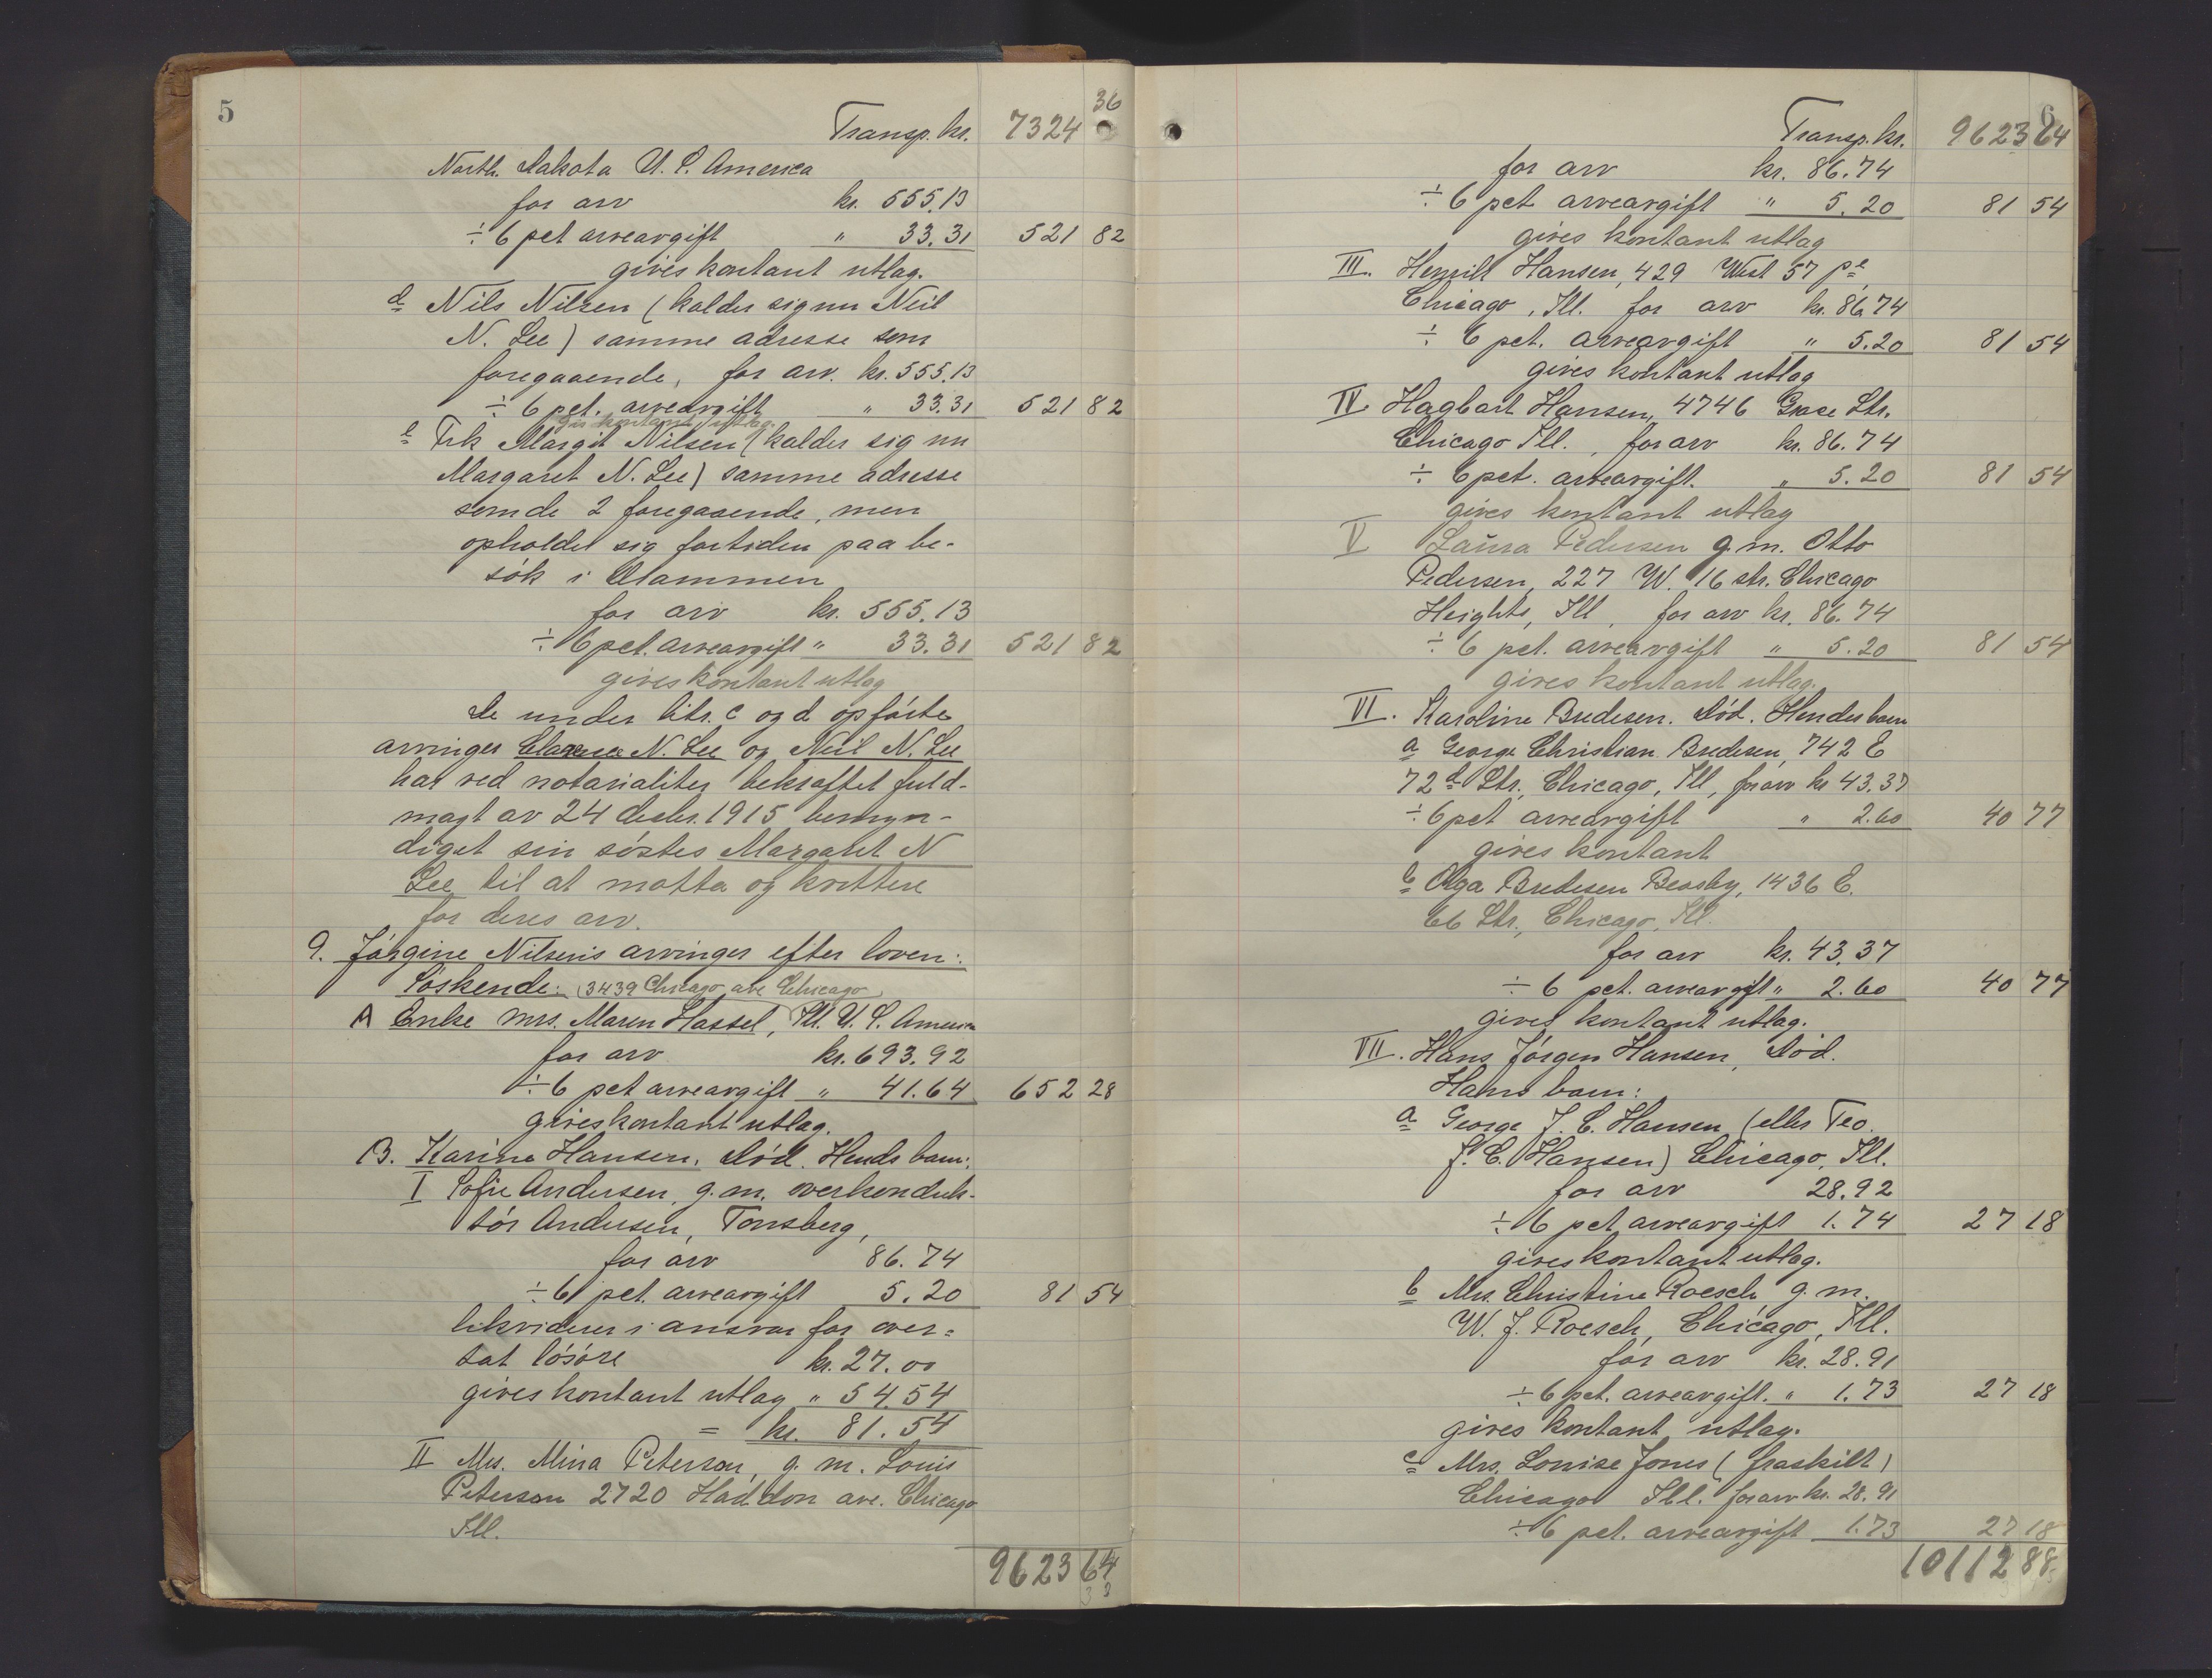 5
Transp. kr. 7324 36
North. Dakota U. S. America
for arv kr. 555.13
÷ 6 pct arveavgift " 33.31 521 82
gives kontant utlag.
d Nils Nilsen (kalder sig nu Neil
N. Lee) samme adresse som
foregaaende, for arv. kr. 555.13
÷ 6 pct. arveavgift " 33.31 521 82
gis kontant utlag.
e Frk Margit Nilsen (kalder sig nu
Margaret N. Lee) samme adresse
som de 2 foregaaende, men
opholdet sig fortiden paa be-
søk i Drammen
for arv kr. 555.13
÷ 6 pct. arveavgift " 33.31 521 82
gives kontant utlag
De under litr. c og d opførte
arvinger Clarence N. Lee og Neil N. Lee
har ved notarialiter bekræftet fuld-
magt av 24 decbr. 1915 bemyn-
diget sin søster Margaret N
Lee til at motta og kvittere
for deres arv.
9. Jørgine Nilsens arvinger efter loven:
Søskende: (3439 Chicago ave Chicago
A Enke mrs. Maren Hassel, Ill. U. S. America
for arv kr. 693.92
÷ 6 pct arveavgift " 41.64 652 28
gives kontant utlag.
B. Karine Hansen. Død. Hends barn:
I Sofie Andersen, g. m. overkonduk-
tør Andersen, Tønsberg,
for arv 86.74
÷ 6 pct. arveavgift 5.20 81 54
likviderer i ansvar for over-
tat løsøre kr. 27.00
gives kontant utlag " 54.54
= kr. 81.54
II Mrs. Mina Peterson, g. m. Louis
Peterson 2720 Haddon ave. Chicago
Ill.
9623 64
3 3
6
Transp. kr. 9623 64
for arv kr. 86.74
÷ 6 pct arveavgift " 5.20 81 54
gives kontant utlag
III. Henrik Hansen, 429 West 57 pl
Chicago, Ill. for arv kr. 86.74
÷ 6 pct. arveavgift " 5.20 81 54
gives kontant utlag
IV Hagbart Hansen, 4746 Grace Str.
Chicago Ill., for arv kr. 86.74
÷ 6 pct. arveavgift. " 5.20 81 54
gives kontant utlag
V Laura Pedersen g. m. Otto
Pedersen, 227 W. 16 str. Chicago
Heights, Ill, for arv kr. 86.74
÷ 6 pct. arveavgift " 5.20 81 54
gives kontant utlag.
VI. Karoline Bredesen. Død. Hendes barn
a George Christian Bredesen, 742 E
72d Str., Chicago, Ill, for arv kr 43.37
÷ 6 pct arveavgift " 2.60 40 77
gives kontant
b Olga Bredesen Beasby, 1436 E.
66 Str., Chicago, Ill.
for arv kr. 43.37
÷ 6 pct. arveavgift " 2.60 40 77
gives kontant utlag.
VII. Hans Jørgen Hansen, Død.
Hans barn:
a George J. C. Hansen (eller Teo.
J. C. Hansen) Chicago, Ill.
for arv 28.92
÷ 6 pct arveavgift 1.74 27 18
gives kontant utlag.
b Mrs. Christine Roesch g. m.
W. J. Roesch, Chicago, Ill.
for arv kr. 28.91
÷ 6 pct. arveavgift. " 1.73 27 18
gives kontant utlag.
c Mrs. Louise Jones (fraskilt)
Chicago Ill. for arv kr. 28.91
÷ 6 pct. arveavgift 1.73 27 18
10112 88